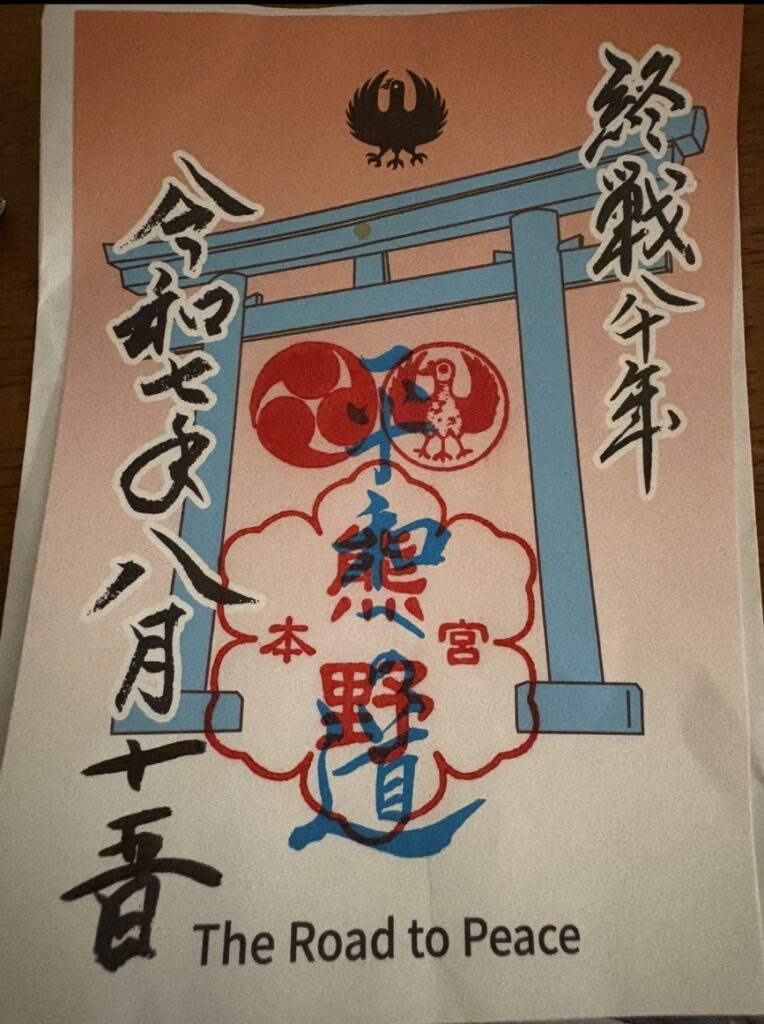 終戦八十年
平和への道
熊野
本宮
令和七年八月十五日
The Road to Peace